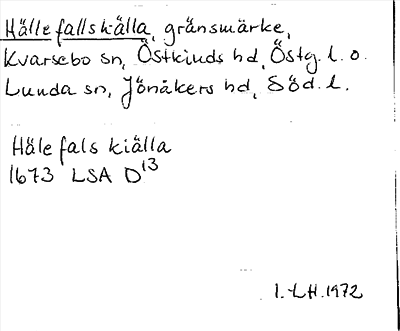 Hällefallskälla, gränsmärke,
Kvarsebo sn, Östkinds hd, Östg. l. o.
Lunda sn, Jönåkers hd, Söd. l.
Häle fals kiälla
1673 LSA D13
I.-L.H. 1972